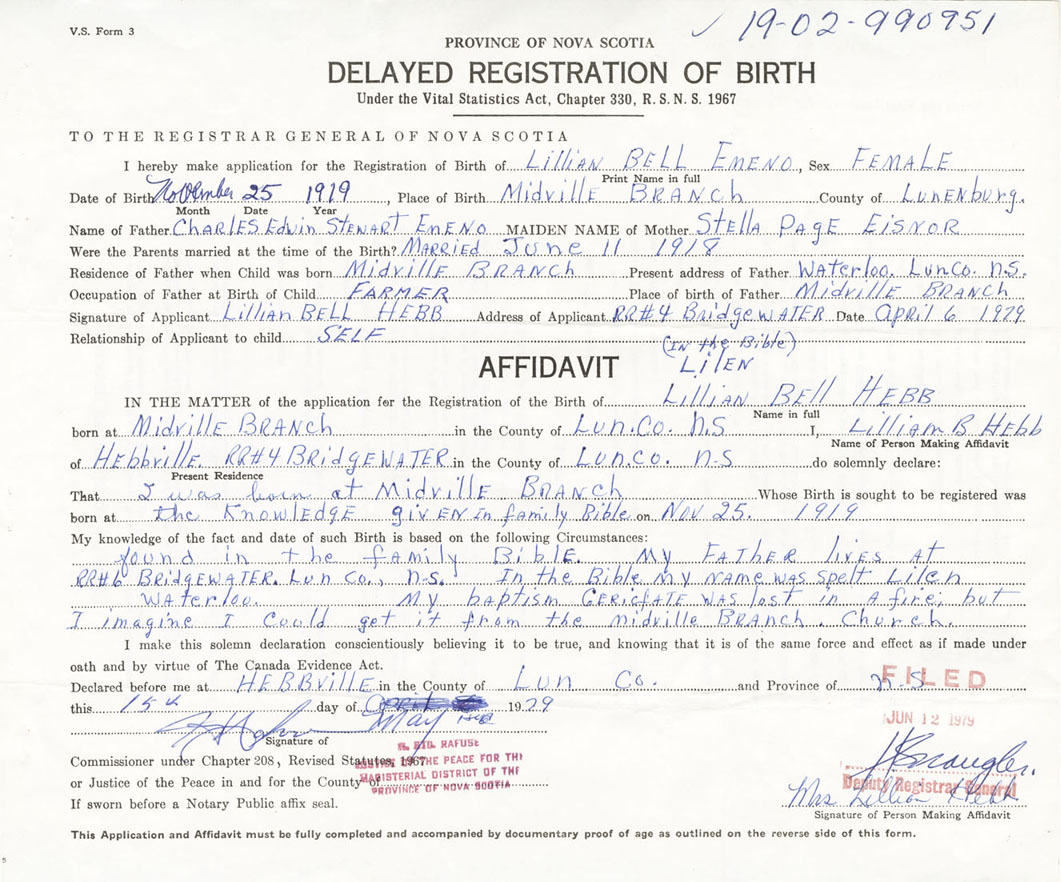 V.S. Form 3
19-02-990951
PROVINCE OF NOVA SCOTIA
DELAYED REGISTRATION OF BIRTH
Under the Vital Statistics Act, Chapter 330, R.S.N.S. 1967
TO THE REGISTRAR GENERAL OF NOVA SCOTIA
I hereby make application for the Registration of Birth of Lillian BELL EMENO, Sex FEMALE
Print Name in full
Date of Birth November 25 1919, Place of Birth Midville BRANCH County of LUNENburg.
Month Date Year
Name of Father CHARLES Edwin STEWART EMENO MAIDEN NAME of Mother STELLA PAGE EISNOR
Were the Parents married at the time of the Birth? MARRIED June 11 1918
Residence of Father when Child was born Midville BRANCH Present address of Father WATERloo. LUNCo. N.S.
Occupation of Father at Birth of Child FARMER Place of birth of Father Midville BRANCH
Signature of Applicant Lillian BELL HEBB Address of Applicant RR#4 BridgeWATER Date April 6 1979
Relationship of Applicant to child SELF
(IN the Bible)
LilEN
AFFIDAVIT
IN THE MATTER of the application for the Registration of the Birth of Lillian Bell HEBB
Name in full
born at Midville BRANCH in the County of LUN.CO. N.S I, Lilliam B Hebb
Name of Person Making Affidavit
of Hebbville. RR#4 BRIDGEWATER in the County of LUN.CO. N-S do solemnly declare:
Present Residence
That I was born at Midville BRANCH Whose Birth is sought to be registered was
born at the KNOWLEDGE given in family Bible on NOV 25. 1919
My knowledge of the fact and date of such Birth is based on the following Circumstances:
found in the family Bible. My FATHER lives at
RR#6 BRIDGEWATER. LUN Co., N-S. In the Bible my NAME WAS spelt LilEN
WATERloo. My baptism CERICFATE WAS lost in A fire; but
I imagine I could get it from the Midville BRANCH. Church.
I make this solemn declaration conscientiously believing it to be true, and knowing that it is of the same force and effect as if made under
oath and by virtue of The Canada Evidence Act.
Declared before me at HEBBville in the County of LUN Co. and Province of N.S
FILED
this day of May 1979
JUN 12 1979
Signature of
Commissioner under Chapter 208, Revised Statutes, 1967
or Justice of the Peace in and for the County of
If sworn before a Notary Public affix seal.
RAFUSE
JUSTICE OF THE PEACE FOR THE
MAGISTERIAL DISTRICT OF THE
PROVINCE OF NOVA SCOTIA
Deputy Registrar General
Mrs Lillian Hebb
Signature of Person Making Affidavit
This Application and Affidavit must be fully completed and accompanied by documentary proof of age as outlined on the reverse side of this form.